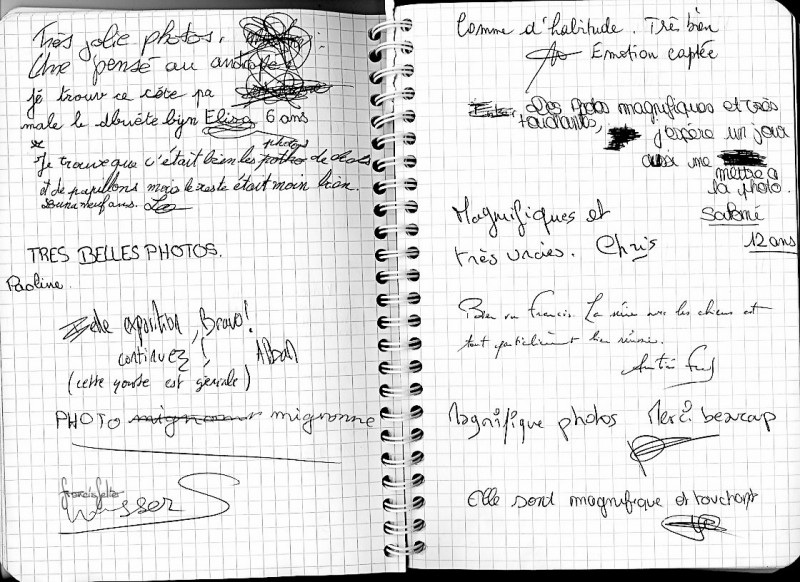 Très jolie photos.
Une pensé au
je trouv ce côte pa
male le dbuète byn Elisa 6 ans
photos
Je trouve que c'était bien les potho de
et de papillons mais le reste était moin bien.
neuf ans. Léa
TRES BELLES PHOTOS.
Paoline
expotition, Bravo!
continuez!
(cette gourde est géniale)
PHOTO mignonne
Comme d'habitude. Très bien
Emotion captée
Des photos magnifiques et très
touchants, j'espère un jour
me
mettre a
la photo.
Salomé
12 ans
Magnifiques et
très vraies. Chris
Bravo Francis. La série avec les chiens est
tout particulièrement bien réussie.
Magnifique photos Merci beaucap
Elle sont magnifique et touchant